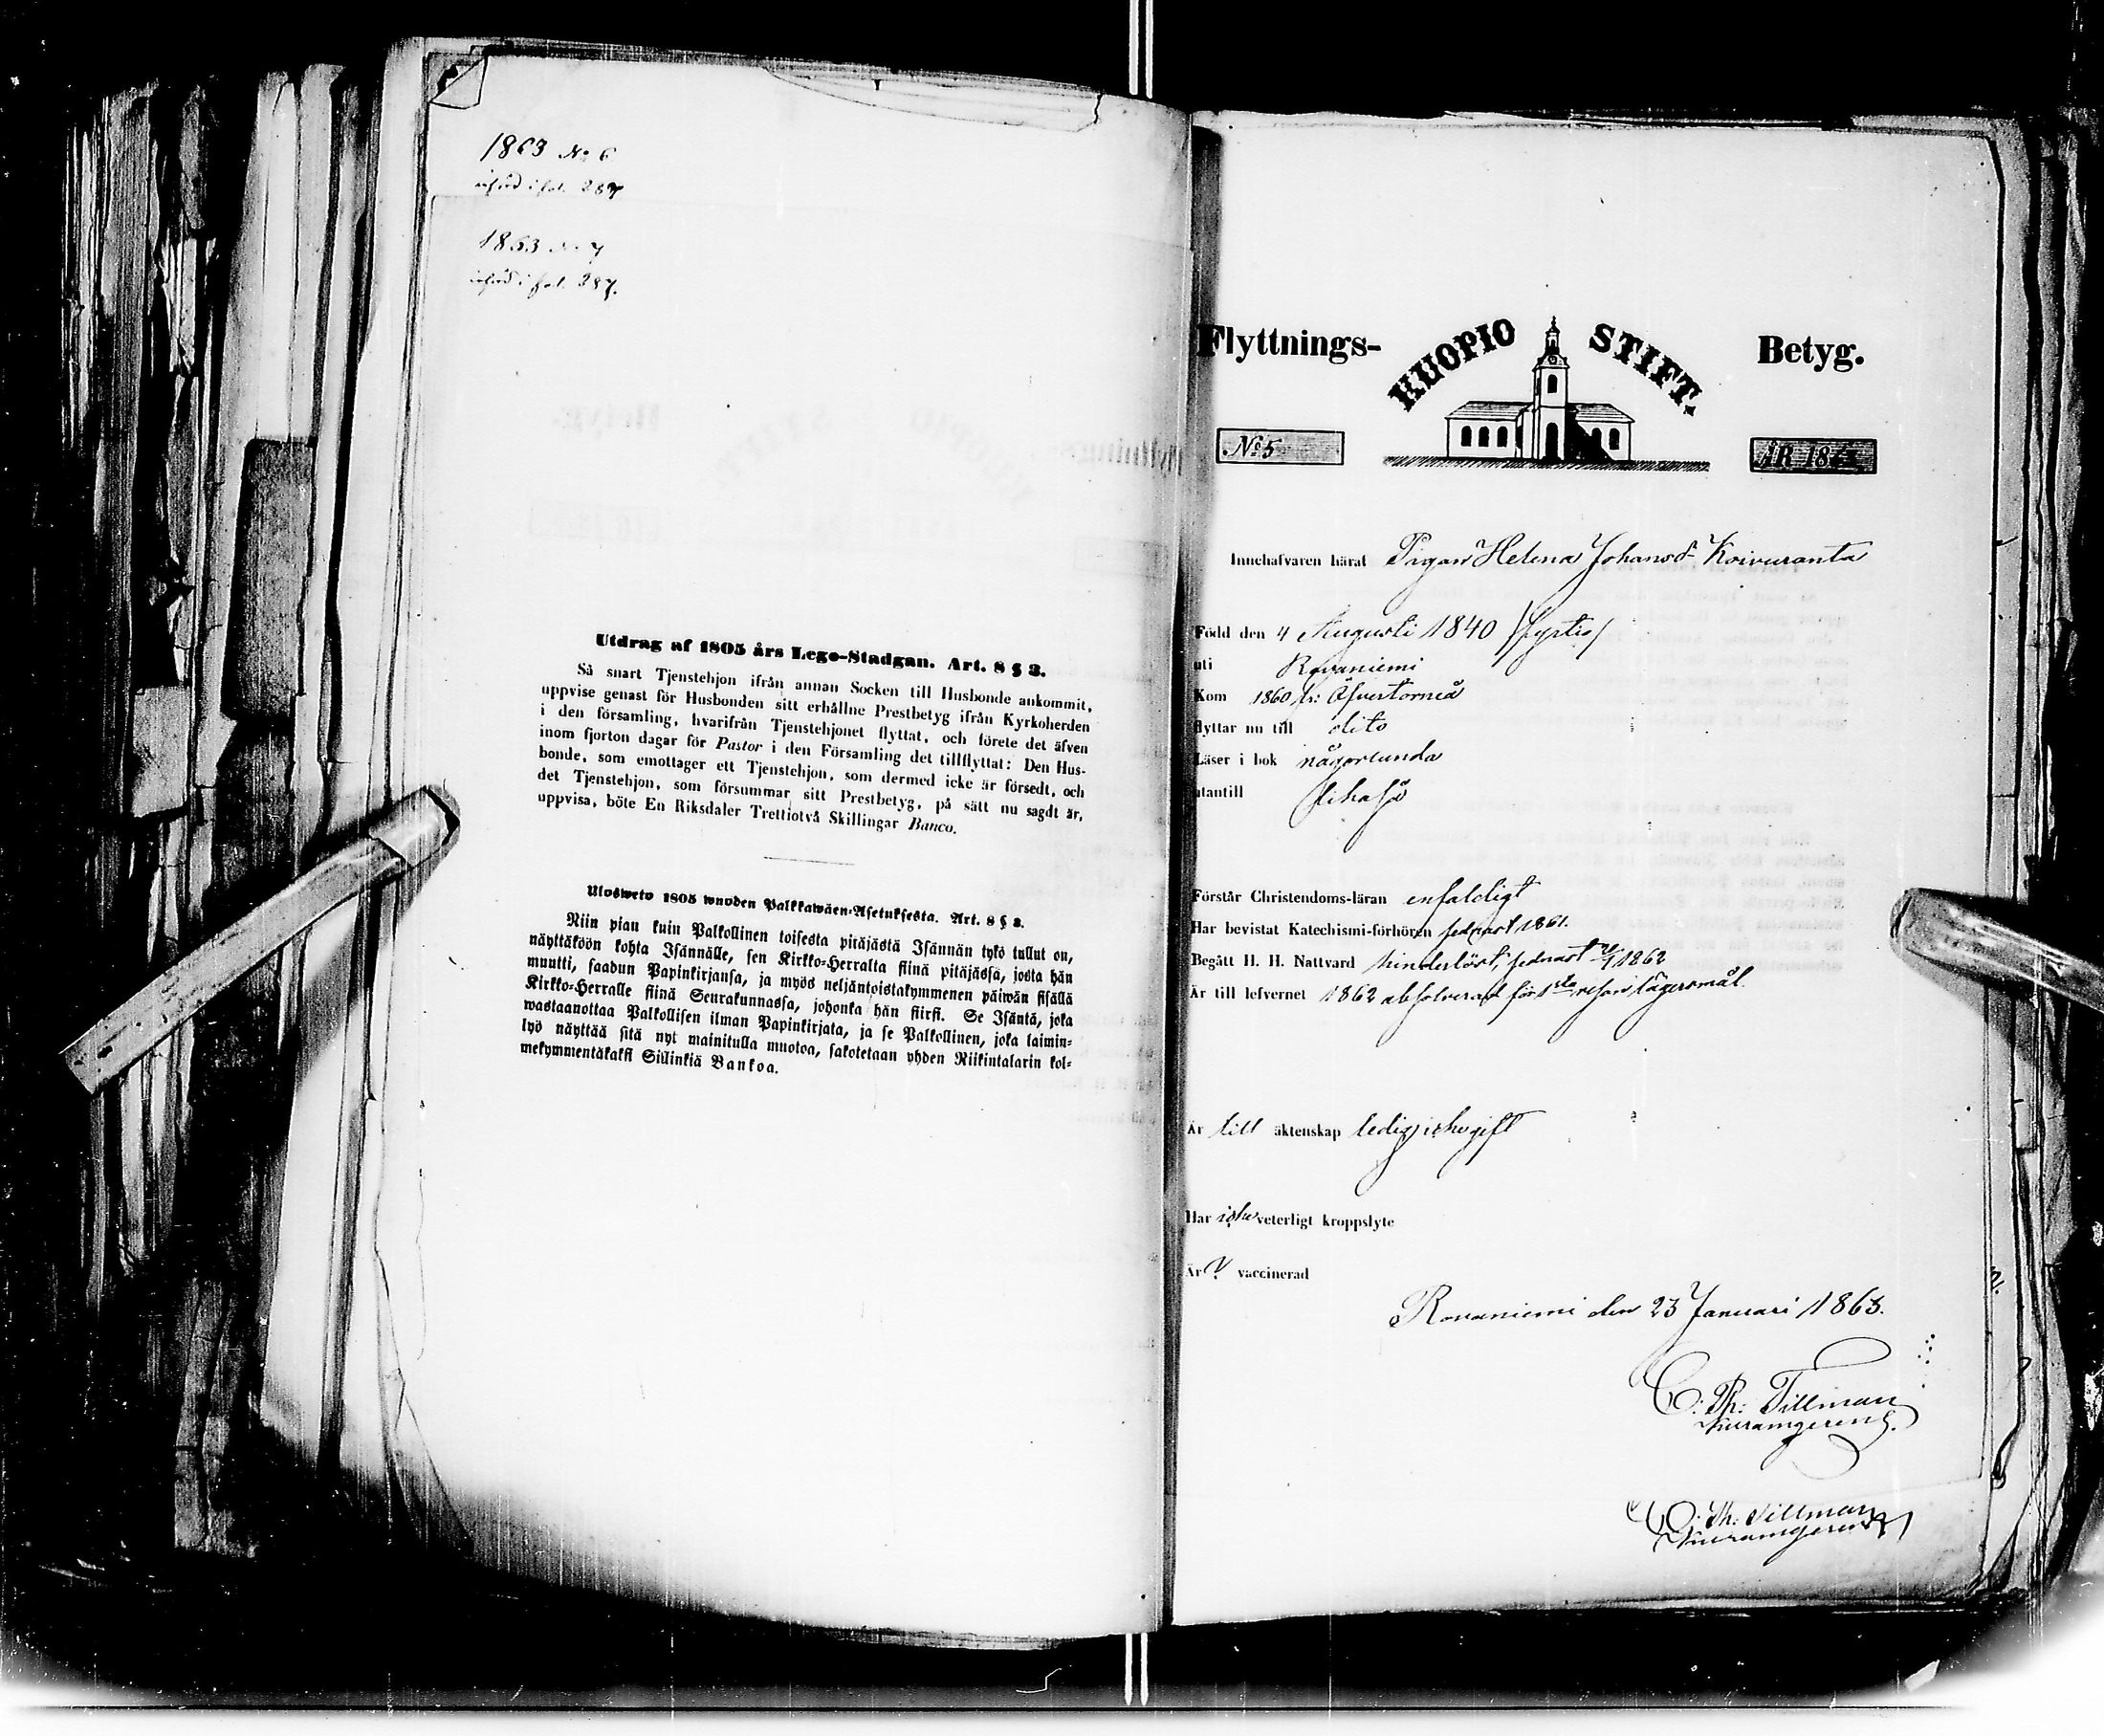 1863 No 6
införd i fol. 287
1863 No 7
införd i fol. 287.
Utdrag af 1805 års Lego-Stadgan. Art. 8 § 3.
Så snart Tjenstehjon ifrån annan Socken till Husbonde ankommit,
uppvise genast för Husbonden sitt erhållne Prestbetyg ifrån Kyrkoherden
i den församling, hvarifrån Tjenstehjonet flyttat, och förete det äfven
inom fjorton dagar för Pastor i den Församling det tillflyttat: Den Hus-
bonde, som emottager ett Tjenstehjon, som dermed icke är försedt, och
det Tjenstehjon, som försummar sitt Prestbetyg, på sätt nu sagdt är,
uppvisa, böte En Riksdaler Trettiotvå Skillingar Banco.
Ulosweto 1805 wuoden Palkkawäen-Asetuksesta. Art. 8 § 3.
Niin pian kuin Palkollinen toisesta pitäjästä Isännän tykö tullut on,
näyttäköön kohta Isännälle, sen Kirkko-Herralta siinä pitäjässä, josta hän
muutti, saadun Papinkirjansa, ja myös neljäntoistakymmenen päiwän sisällä
Kirkko-Herralle siinä Seurakunnassa, johonka hän siirsi. Se Isäntä, joka
wastaanottaa Palkollisen ilman Papinkirjata, ja se Palkollinen, joka laimin-
lyö näyttää sitä nyt mainitulla muotoa, sakotetaan yhden Riikintalarin kol-
mekymmentäkaksi Sillinkiä Bankoa.
Flyttnings- KUOPIO STIFT. Betyg.
No 5 ÅR 1863
Innehafvaren härat Pigan Helena Johansd. Koivuranta
Född den 4 Augusti 1840 /fyrtio/
uti Rovaniemi
Kom 1860 fr: Öfvertorneå
flyttar nu till dito
Läser i bok någorlunda
utantill likaså
Förstår Christendoms-läran enfaldigt
Har bevistat Katechismi-förhören sednast 1861.
Begått H. H. Nattvard hinderlöst, sednast 1862
Är till lefvernet 1862 absolverad för 1sta resan lägersmål.
Är till äktenskap ledig icke gift
Har icke veterligt kroppslyte
Är vaccinerad
Rovaniemi den 23 Januari 1863.
C: Th: Tillman
C: Th: Tillman